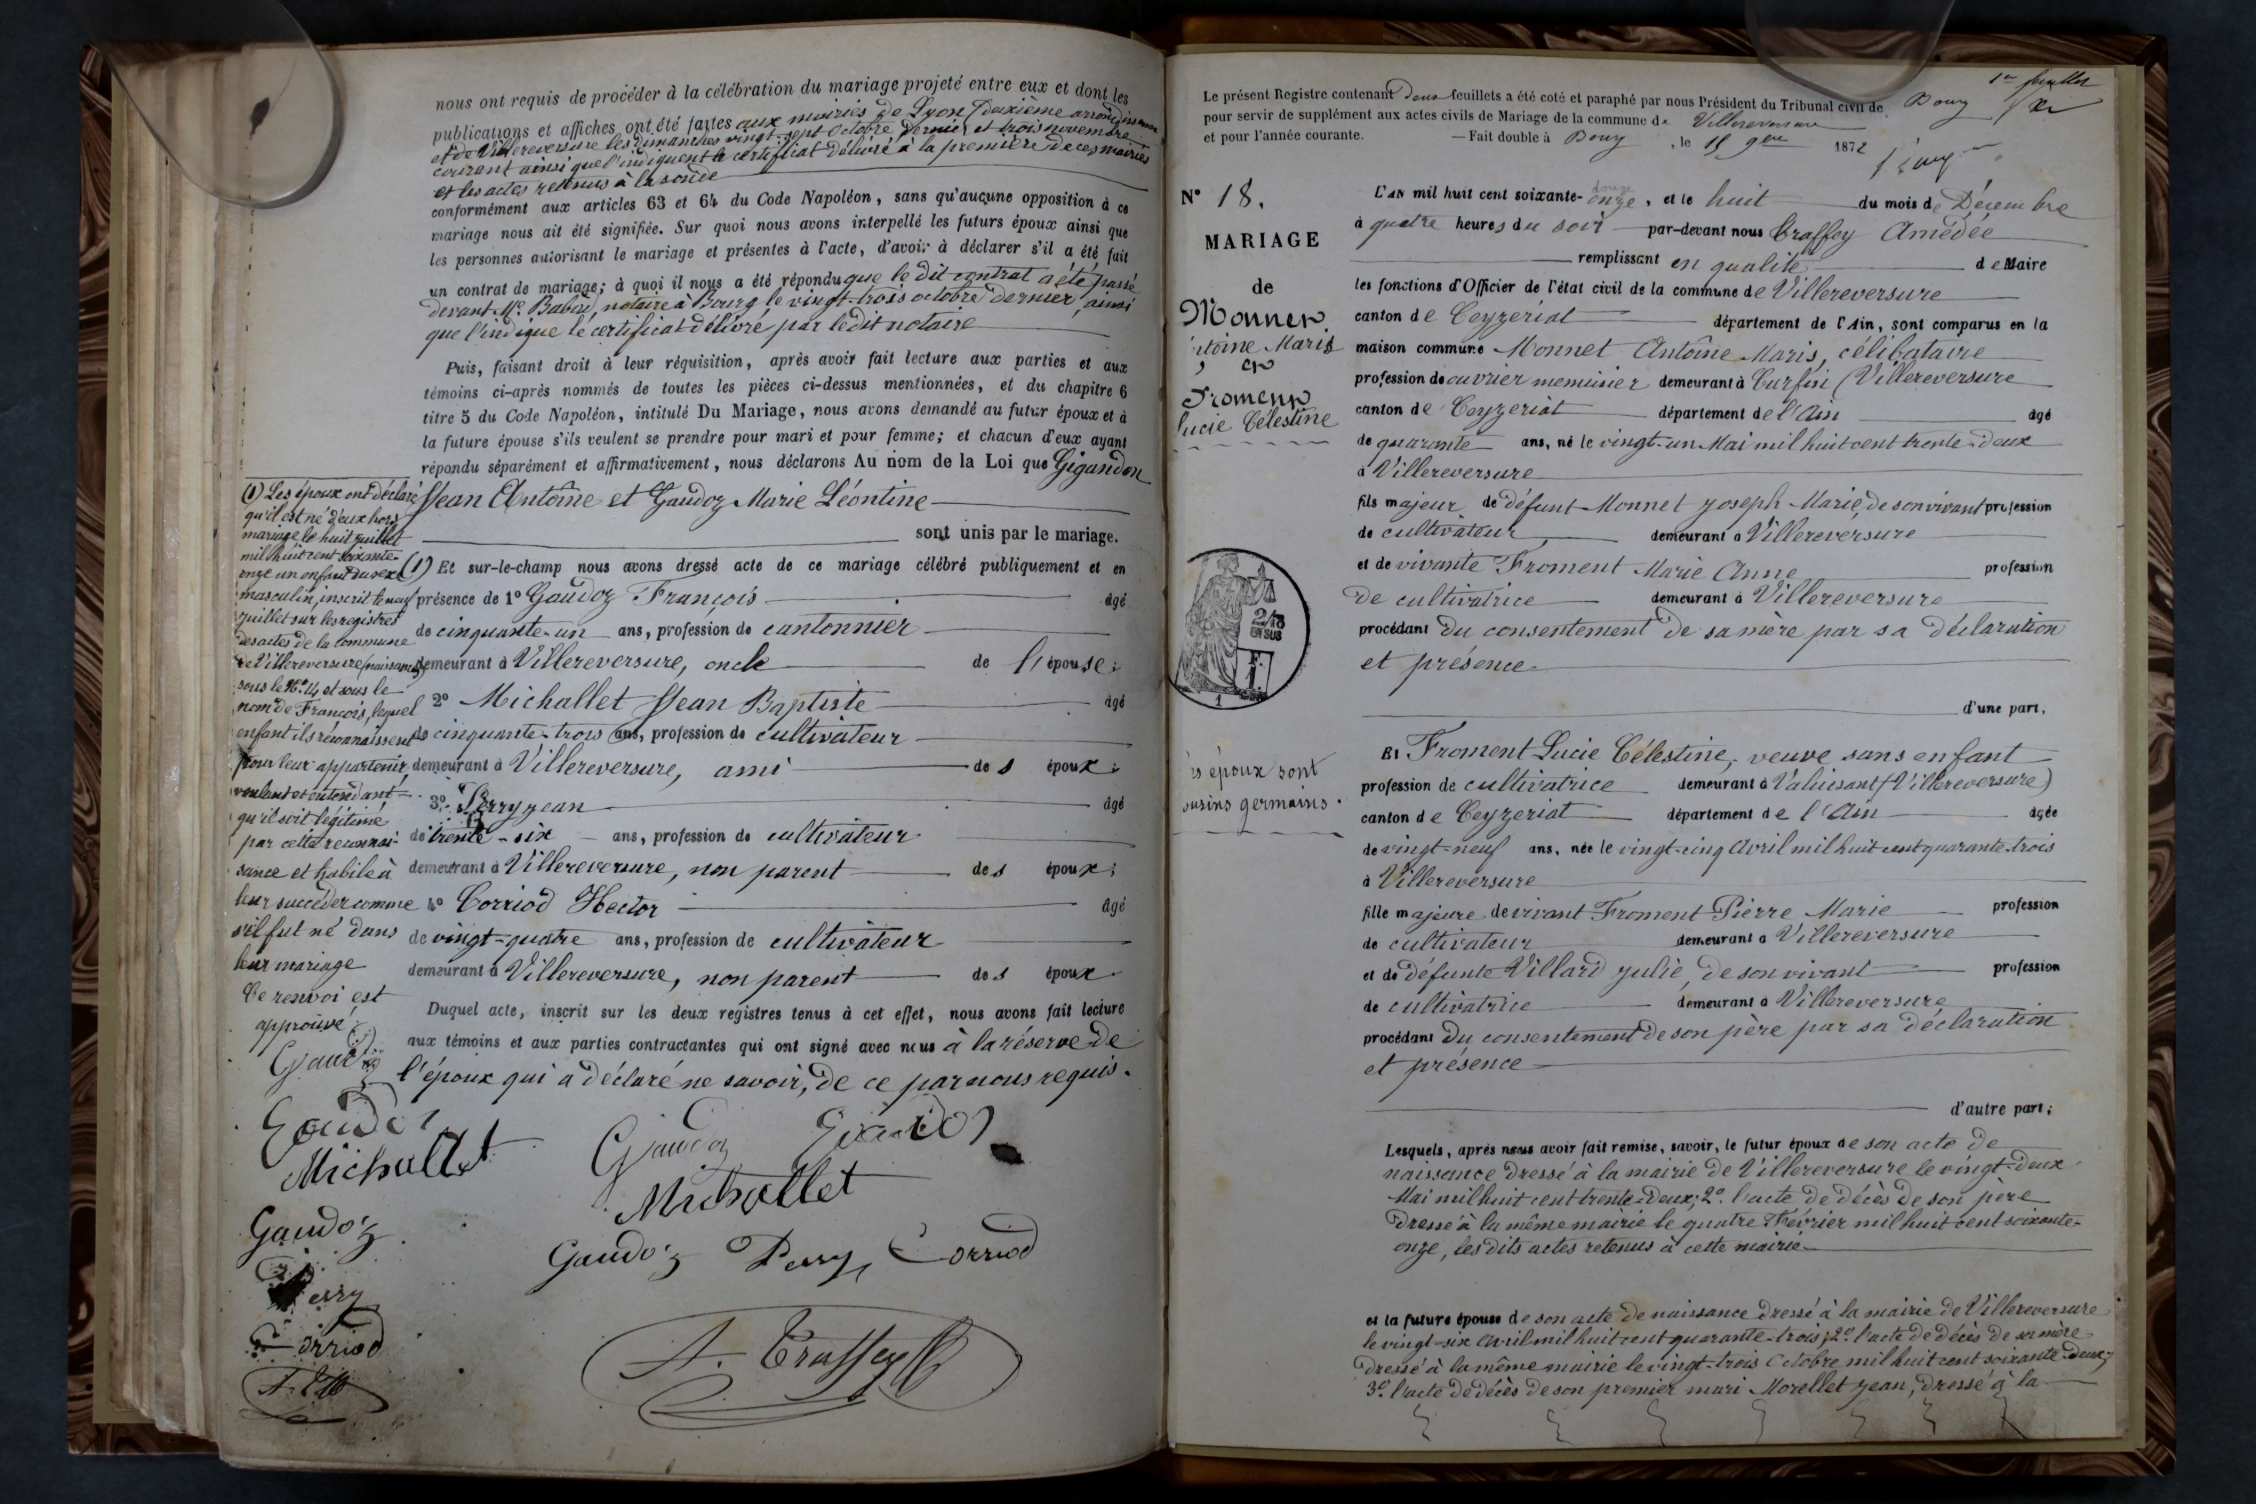 nous ont requis de procéder à la célébration du mariage projeté entre eux et dont les
publications et affiches ont été faites aux mairies de Lyon (deuxième arrondissement
et de Villereversure les dimanches vingt-sept Octobre dernier et trois novembre
courant ainsi que l'indiquent le certificat délivré à la première de ces mairies
et les actes retenus à la
conformément aux articles 63 et 64 du Code Napoléon, sans qu'aucune opposition à ce
mariage nous ait été signifiée. Sur quoi nous avons interpellé les futurs époux ainsi que
les personnes autorisant le mariage et présentes à l'acte, d'avoir à déclarer s'il a été fait
un contrat de mariage; à quoi il nous a été répondu que le dit contrat a été passé
devant Me notaire à Bourg le vingt-trois octobre dernier, ainsi
que l'indique le certificat délivré par le dit notaire
Puis, faisant droit à leur réquisition, après avoir fait lecture aux parties et aux
témoins ci-après nommés de toutes les pièces ci-dessus mentionnées, et du chapitre 6
titre 5 du Code Napoléon, intitulé Du Mariage, nous avons demandé au futur époux et à
la future épouse s'ils veulent se prendre pour mari et pour femme; et chacun d'eux ayant
répondu séparément et affirmativement, nous déclarons Au nom de la Loi que Gigandon
Jean Antoine et Gaudoz Marie Léontine
sont unis par le mariage.
(1) Et sur-le-champ nous avons dressé acte de ce mariage célébré publiquement et en
présence de 1º Gaudoz François âgé
de cinquante-un ans, profession de cantonnier
demeurant à Villereversure, oncle de l'épouse;
2º Michallet Jean Baptiste âgé
de cinquante-trois ans, profession de cultivateur
demeurant à Villereversure, ami des époux;
3º Perry jean âgé
de trente-six ans, profession de cultivateur
demeurant à Villereversure, non parent des époux;
4º Corriod Hector âgé
de vingt-quatre ans, profession de cultivateur
demeurant à Villereversure, non parent des époux
Duquel acte, inscrit sur les deux registres tenus à cet effet, nous avons fait lecture
aux témoins et aux parties contractantes qui ont signé avec nous à la réserve de
l'époux qui a déclaré ne savoir, de ce par nous requis.
(1) Les époux ont déclaré
qu'il est né d'eux hors
mariage le huit juillet
mil huit cent soixante-
onze un enfant du sexe
masculin, inscrit le neuf
juillet sur les registres
des actes de la commune
de Villereversure (naissances)
sous le Nº 14 et sous le
nom de François, lequel
enfant ils reconnaissent
pour leur appartenir,
voulant et entendant
qu'il soit légitimé
par cette reconnais-
sance et habile à
leur succéder comme
s'il fut né dans
leur mariage
Ce renvoi est
approuvé
Gaudoz
Gaudoz
Michallet
Gaudoz
Perry
Corriod
Gaudoz
Michallet
Gaudoz Perry Corriod
A. Traffey
1er feuillet
Le présent Registre contenant deux feuillets a été coté et paraphé par nous Président du Tribunal civil de Bourg
pour servir de supplément aux actes civils de Mariage de la commune de Villereversure
et pour l'année courante. — Fait double à Bourg, le 15 9bre 1872
Nº 18.
MARIAGE
de
Monnet
ntoine Marie
et
Froment
Lucie Célestine
2/10
EN SUS
F.
1
1
es époux sont
ousins germains.
L'AN mil huit cent soixante-onze, et le huit du mois de Décembre
douze
à quatre heures du soir par-devant nous Traffey Amédée
remplissant en qualité de Maire
les fonctions d'Officier de l'état civil de la commune de Villereversure
canton de Ceyzériat département de l'Ain, sont comparus en la
maison commune Monnet Antoine Marie, célibataire
profession de ouvrier menuisier demeurant à Curfin (Villereversure
canton de Ceyzeriat département de l'Ain âgé
de quarante ans, né le vingt-un Mai mil huit cent trente-deux
à Villereversure
fils majeur de défunt Monnet Joseph Marie, de son vivant profession
de cultivateur demeurant à Villereversure
et de vivante Froment Marie Anne profession
de cultivatrice demeurant à Villereversure
procédant du consentement de sa mère par sa déclaration
et présence
d'une part,
Et Froment Lucie Célestine, veuve sans enfant
profession de cultivatrice demeurant à Valuisant (Villereversure)
canton de Ceyzeriat département de l'Ain âgée
de vingt-neuf ans, née le vingt-cinq Avril mil huit cent quarante-trois
à Villereversure
fille majeure de vivant Froment Pierre Marie profession
de cultivateur demeurant à Villereversure
et de défunte Villard Julie, de son vivant profession
de cultivatrice demeurant à Villereversure
procédant du consentement de son père par sa déclaration
et présence
d'autre part;
Lesquels, après nous avoir fait remise, savoir, le futur époux de son acte de
naissance dressé à la mairie de Villereversure le vingt-deux
Mai mil huit cent trente-deux; 2º l'acte de décès de son père
dressé à la même mairie le quatre Février mil huit cent soixante-
onze, les dits actes retenus à cette mairie
et la future épouse de son acte de naissance dressé à la mairie de Villereversure
le vingt-six Avril mil huit cent quarante-trois; 2º l'acte de décès de sa mère
dressé à la même mairie le vingt-trois Octobre mil huit cent soixante-deux;
3º l'acte de décès de son premier mari Morellet Jean, dressé à la